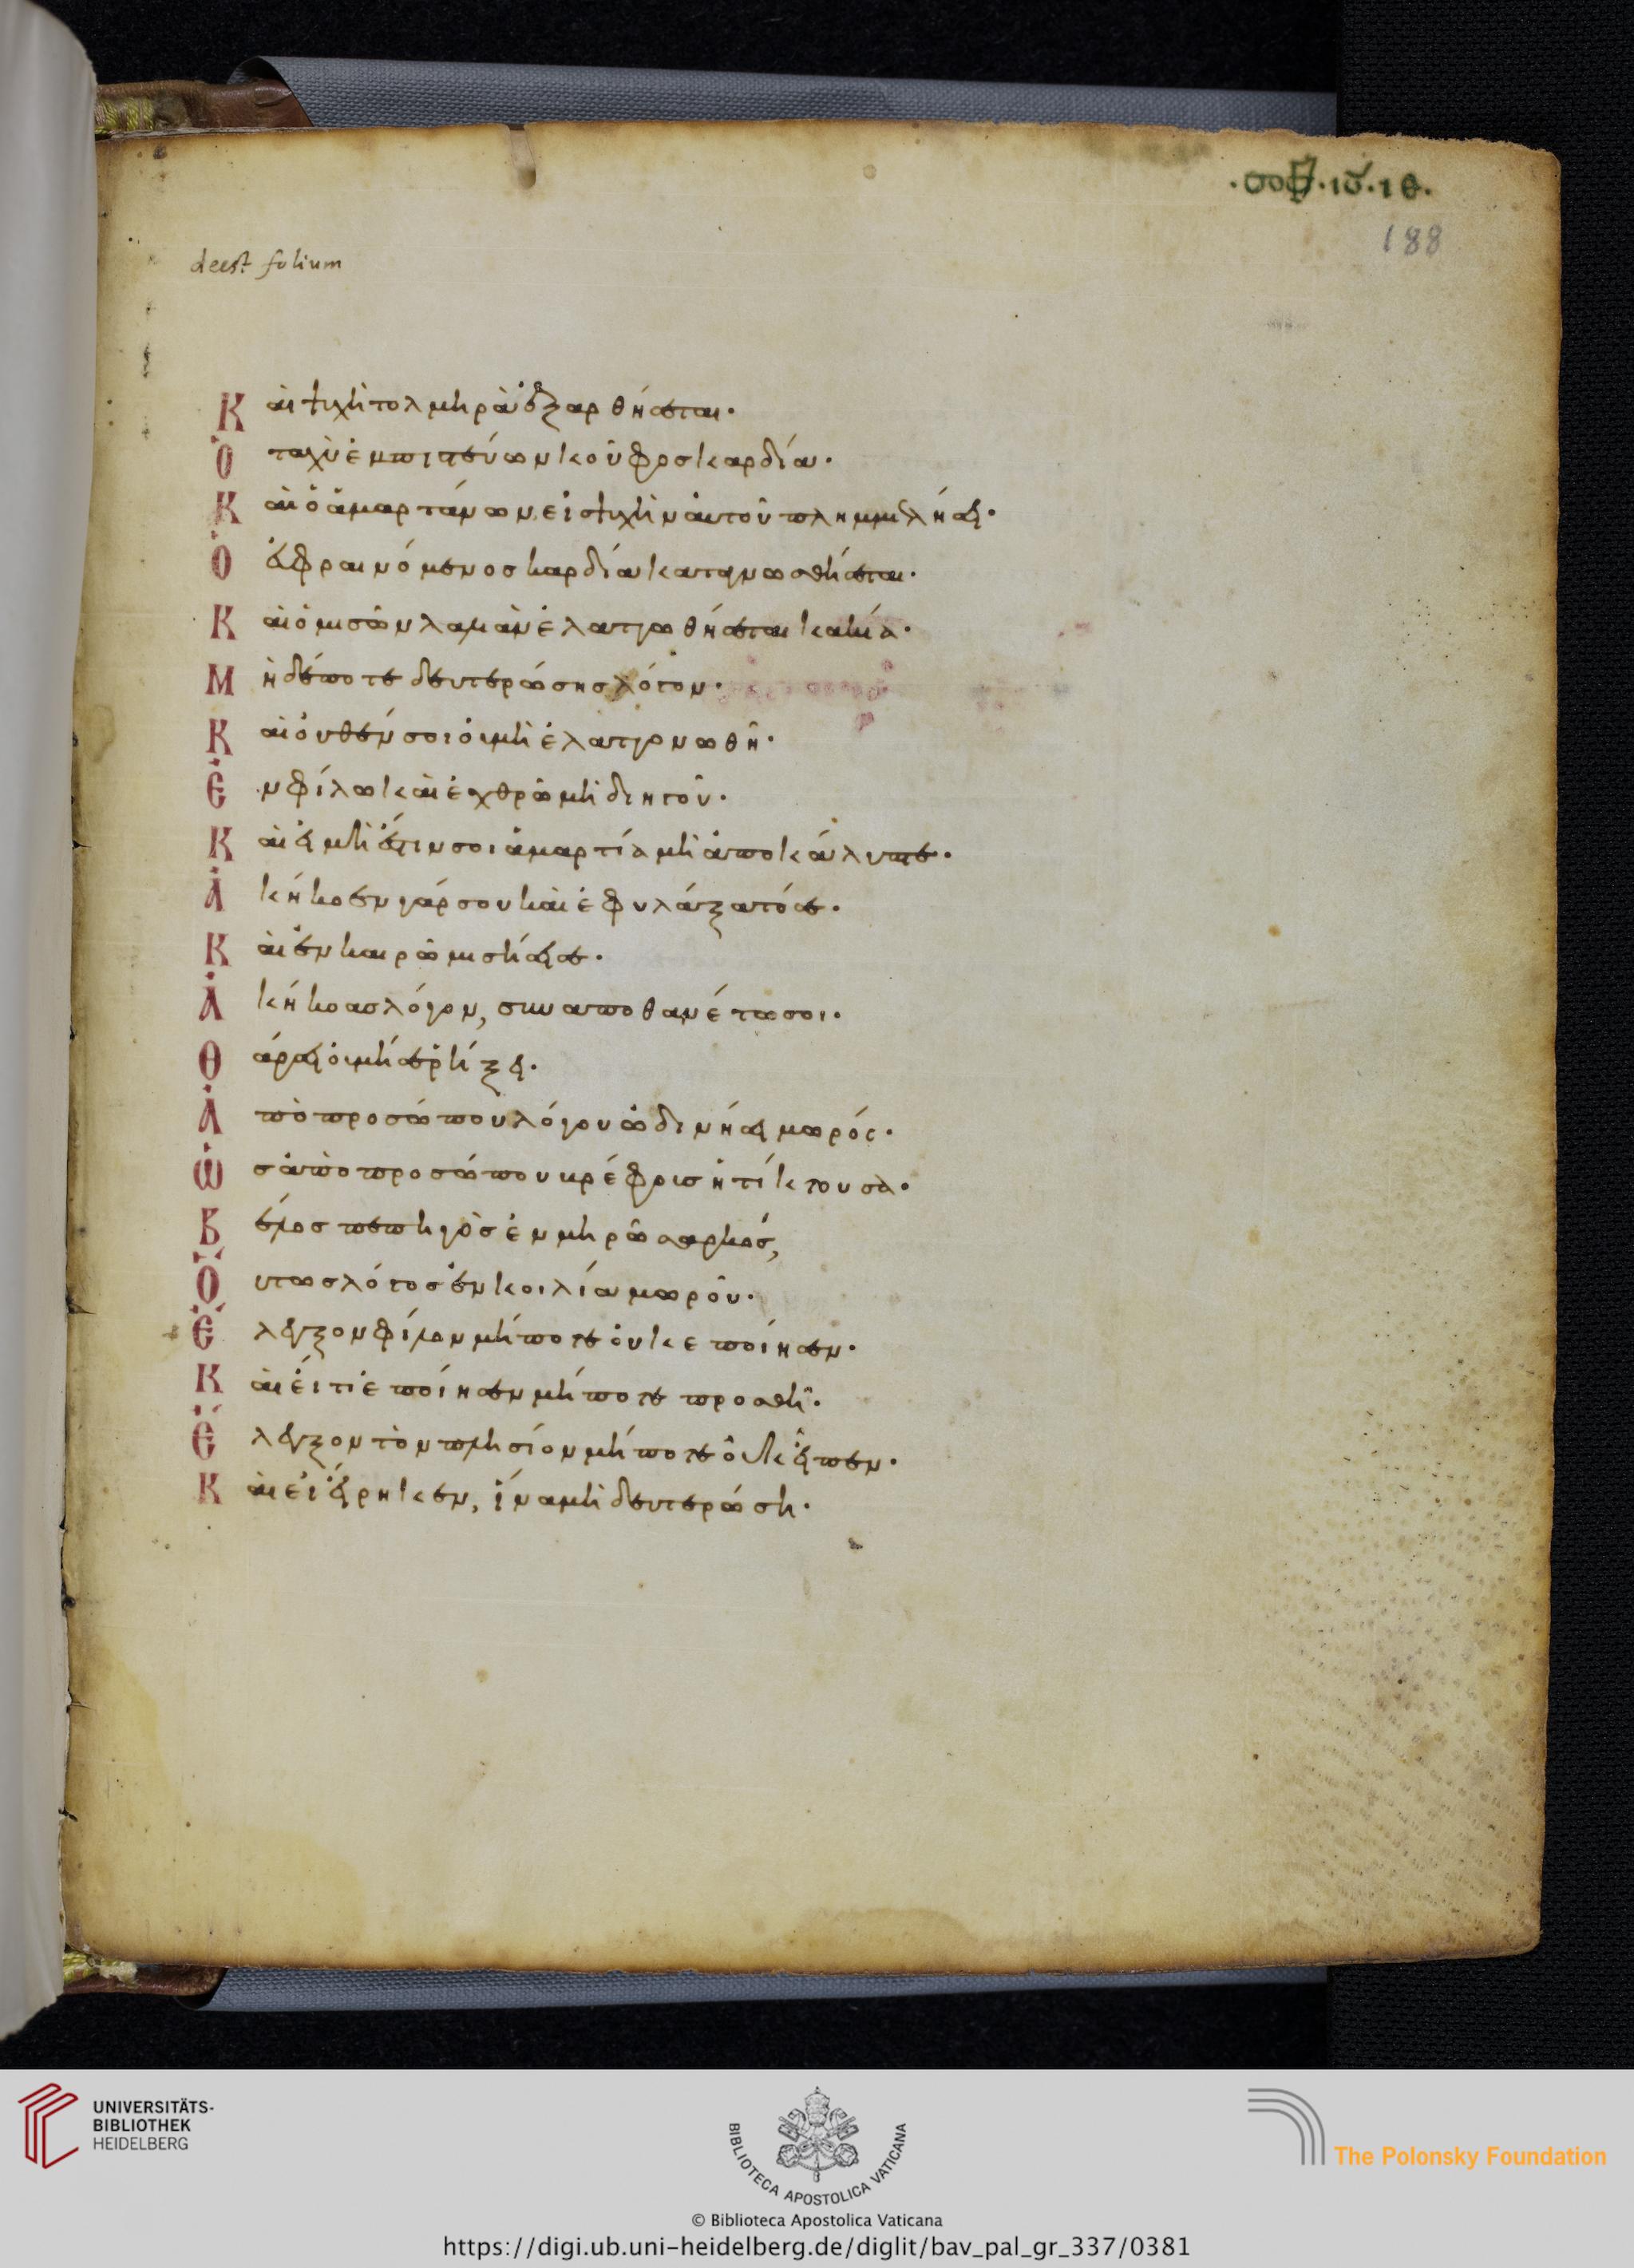 ·σοφ·ιδ·ιθ·
188
deest folium
Καὶ ψυχὴ τολμηρὰ ἐξαρθήσεται·
Ὁ ταχὺ ἐμπιστεύων κοῦφος καρδία·
Καὶ ὁ ἁμαρτάνων, εἰς ψυχὴν αὐτοῦ πλημμελήσει·
Ὁ εὐφραινόμενος καρδία καταγνωσθήσεται·
Καὶ ὁ μισῶν λαλιὰν ἐλαττωθήσεται κακία·
Μηδέποτε δευτερώσης λόγον·
Καὶ οὐθέν σοι οὐ μὴ ἐλαττονωθῆ·
Ἐν φίλω καὶ ἐχθρῶ μὴ διηγοῦ·
Καὶ εἰ μή ἐστιν σοι ἁμαρτία μὴ ἀποκάλυπτε·
Ἀκήκοεν γάρ σου καὶ ἐφυλάξατό σε·
Καὶ ἐν καιρῶ μισήσει σε·
Ἀκήκοας λόγον, συναποθανέτω σοι·
Θάρσει οὐ μή σε ῥήξει·
Ἀπὸ προσώπου λόγου ὠδινήσει μωρός·
Ὡς ἀπὸ προσώπου βρέφους ἡ τίκτουσα·
Βέλος πεπηγὸς ἐν μηρῶ σαρκός,
Οὕτως λόγος ἐν κοιλία μωροῦ·
Ἔλεγξον φίλον μήποτε οὐκ ἐποίησεν·
Καὶ εἴ τι ἐποίησεν μήποτε προσθῆ·
Ἔλεγξον τὸν πλησίον μήποτε οὐκ εἶπεν·
Καὶ εἰ εἴρηκεν, ἵνα μὴ δευτερώση·
UNIVERSITÄTS-
BIBLIOTHEK
HEIDELBERG
BIBLIOTECA APOSTOLICA VATICANA
The Polonsky Foundation
© Biblioteca Apostolica Vaticana
https://digi.ub.uni-heidelberg.de/diglit/bav_pal_gr_337/0381